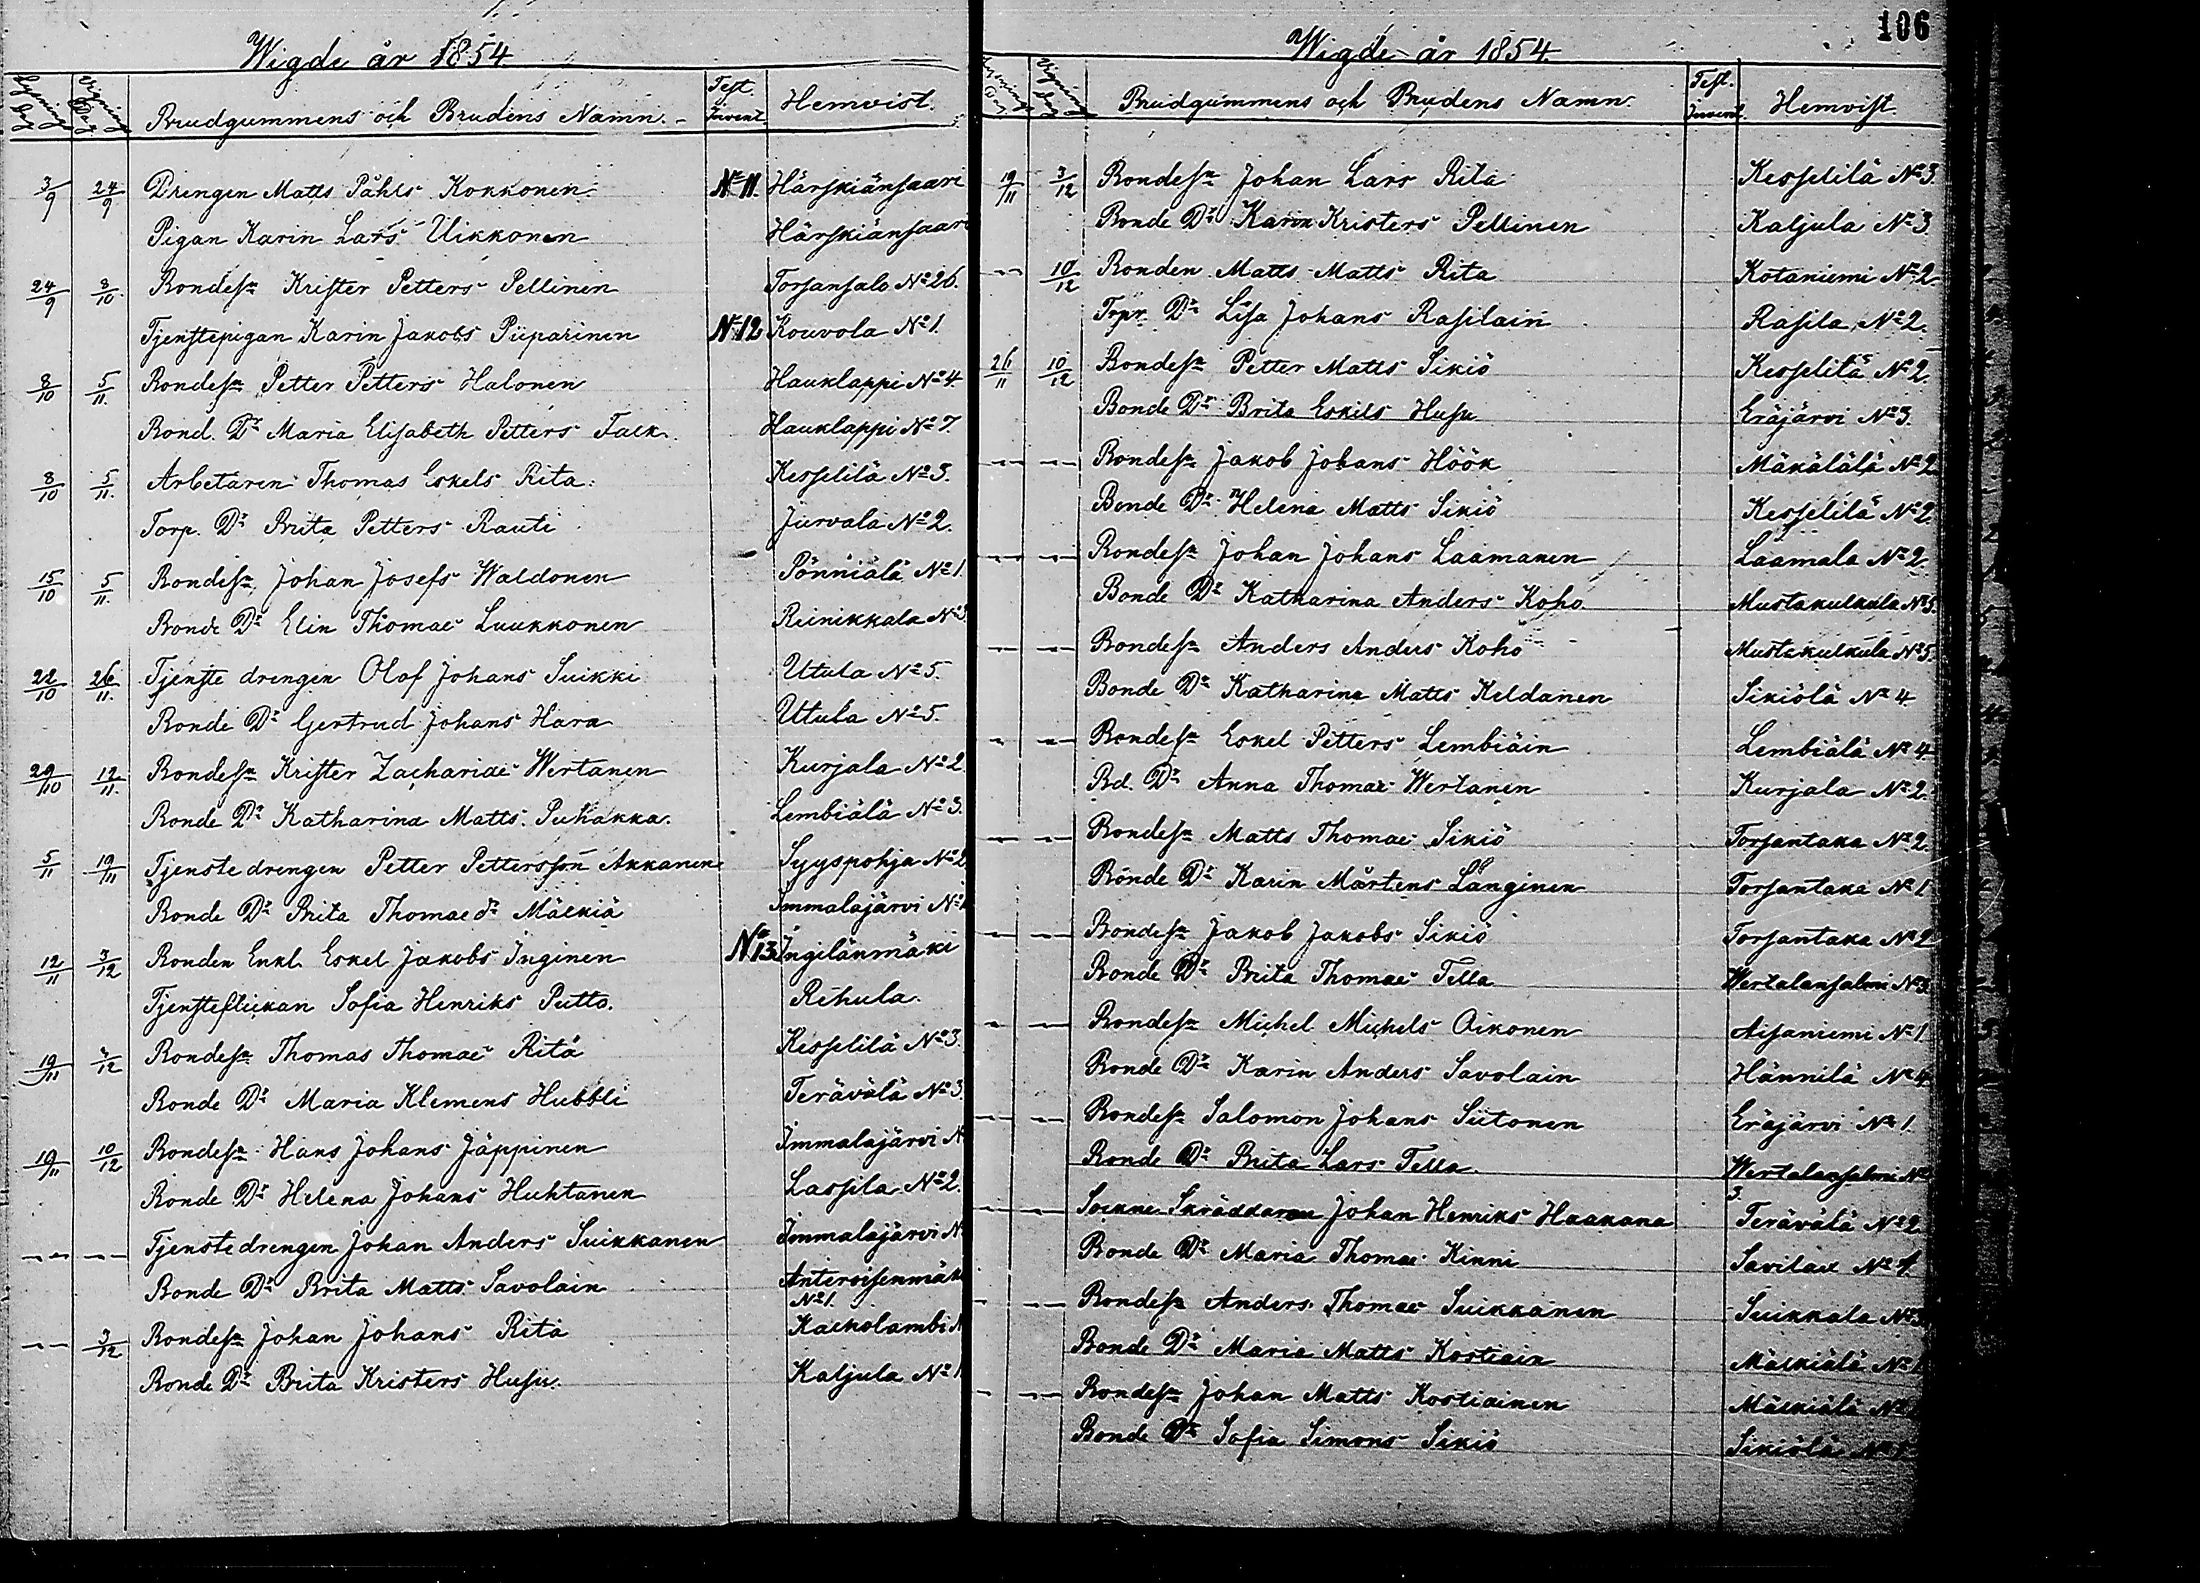 Wigde år 1854
Lysnings Dag Vigning Dag Brudgummens och Brudens Namn. Test. Invent. Hemvist.
3/9 24/9 Drengen Matts Påhls Kokkonen No 11. Härskiänsaari
Pigan Karin Lars Uikkonen Härskiänsaari
24/9 8/10 Bondesn Krister Petters Pellinen Torsansalo No 26.
Tjenstepigan Karin Jakobs Piiparinen No 12 Kouvola No 1.
8/10 5/11. Bondesn Petter Petters Halonen Hauklappi No 4.
Bond. Dr Maria Elisabeth Petters Falk. Hauklappi No 7.
8/10 5/11. Arbetaren Thomas Eskels Rita. Kesselilä No 3.
Torp. Dr Brita Petters Rauti Jurvala No 2.
15/10 5/11. Bondesn Johan Josefs Waldonen Pönniälä No 1
Bonde Dr Elin Thomae Luukkonen Reinikkala No 3
22/10 26/11. Tjenste drengen Olof Johans Suikki Utula No 5.
Bonde Dr Gertrud Johans Hara Utula No 5.
29/10 12/11. Bondesn Krister Zachariae Wertanen Kurjala No 2
Bonde Dr Katharina Matts Puhakka. Lembiälä No 3.
5/11 19/11 Tjenste drengen Petter Pettersson Akkanen Syyspohja No 2
Bonde Dr Brita Thomae dr Mälkiä Immalajärvi No 1
12/11 3/12 Bonden Enkl. Eskel Jakobs Inginen No 13 Ingilänmäki
Tjensteflickan Sofia Henriks Putto. Rihula.
19/11 /12 Bondesn Thomas Thomae Ritä Kesselilä No 3.
Bonde Dr Maria Klemens Hubbli Terävälä No 3
19/11 10/12 Bondesn Hans Johans Jäppinen Immalajärvi No
Bonde Dr Helena Johans Huhtanen Lassila No 2.
— — Tjenste drengen Johan Anders Suikkanen Immalajärvi No
Bonde Dr Brita Matts Savolain
No 1.
— 3/12 Bondesn Johan Johans Ritä Kalkolambi No
Bonde Dr Brita Kristers Husu. Kaljula No 1
106
Wigde år 1854.
Lysnings Dag Vigning Dag Brudgummens och Brudens Namn. Test. Invent. Hemvist.
19/11 3/12 Bondesn Johan Lars Rita Kesselilä No 3.
Bonde Dr Karin Kristers Pellinen Kaljula No 3
— 10/12 Bonden Matts Matts Rita Kotaniemi No 2
Torpr. Dr Lisa Johans Rasilain Rasila No 2.
26/11 10/12 Bondesn Petter Matts Sikiö Kesselilä No 2.
Bonde Dr Brita Eskils Husu Eräjärvi No 3.
— — Bondesn Jakob Johans Höök Mäkälälä No 2
Bonde Dr Helena Matts Sikiö Kesselilä No 2
— — Bondesn Johan Johans Laamanen Laamala No 2
Bonde Dr Katharina Anders Koho Mustakulkula No 5.
— — Bondesn Anders Anders Koho Mustakulkula No 5.
Bonde Dr Katharina Matts Keldanen Sikiölä No 4
— — Bondesn Eskel Petters Lembiäin Lembiälä No 4
Bd. Dr Anna Thomae Wertanen Kurjala No 2.
— — Bondesn Matts Thomae Sikiö Torsantaka No 2
Bonde Dr Karin Mårtens Länginen Torsantaka No 1
— — Bondesn Jakob Jakobs Sikiö Torsantaka No 2
Bonde Dr Brita Thomae Tella Wertalansalmi No 3.
— — Bondesn Michel Michels Oikonen Aisaniemi No 1
Bonde Dr Karin Anders Savolain Hännilä No 4
— — Bondesn Salomon Johans Siitonen Eräjärvi No 1.
Bonde Dr Brita Lars Tella Wertalansalmi No
3.
— — Sockne Skräddaren Johan Henriks Haakana Terävälä No 2
Bonde Dr Maria Thomae Kinni Savilax No 4
— — Bondesn Anders Thomae Suikkanen Suikkala No 3
Bonde Dr Maria Matts Kostiain Mälkiälä No 1
— — Bondesn Johan Matts Kostiainen Mälkiälä No
Bonde Dr Sofia Simons Sikiö Sikiölä No